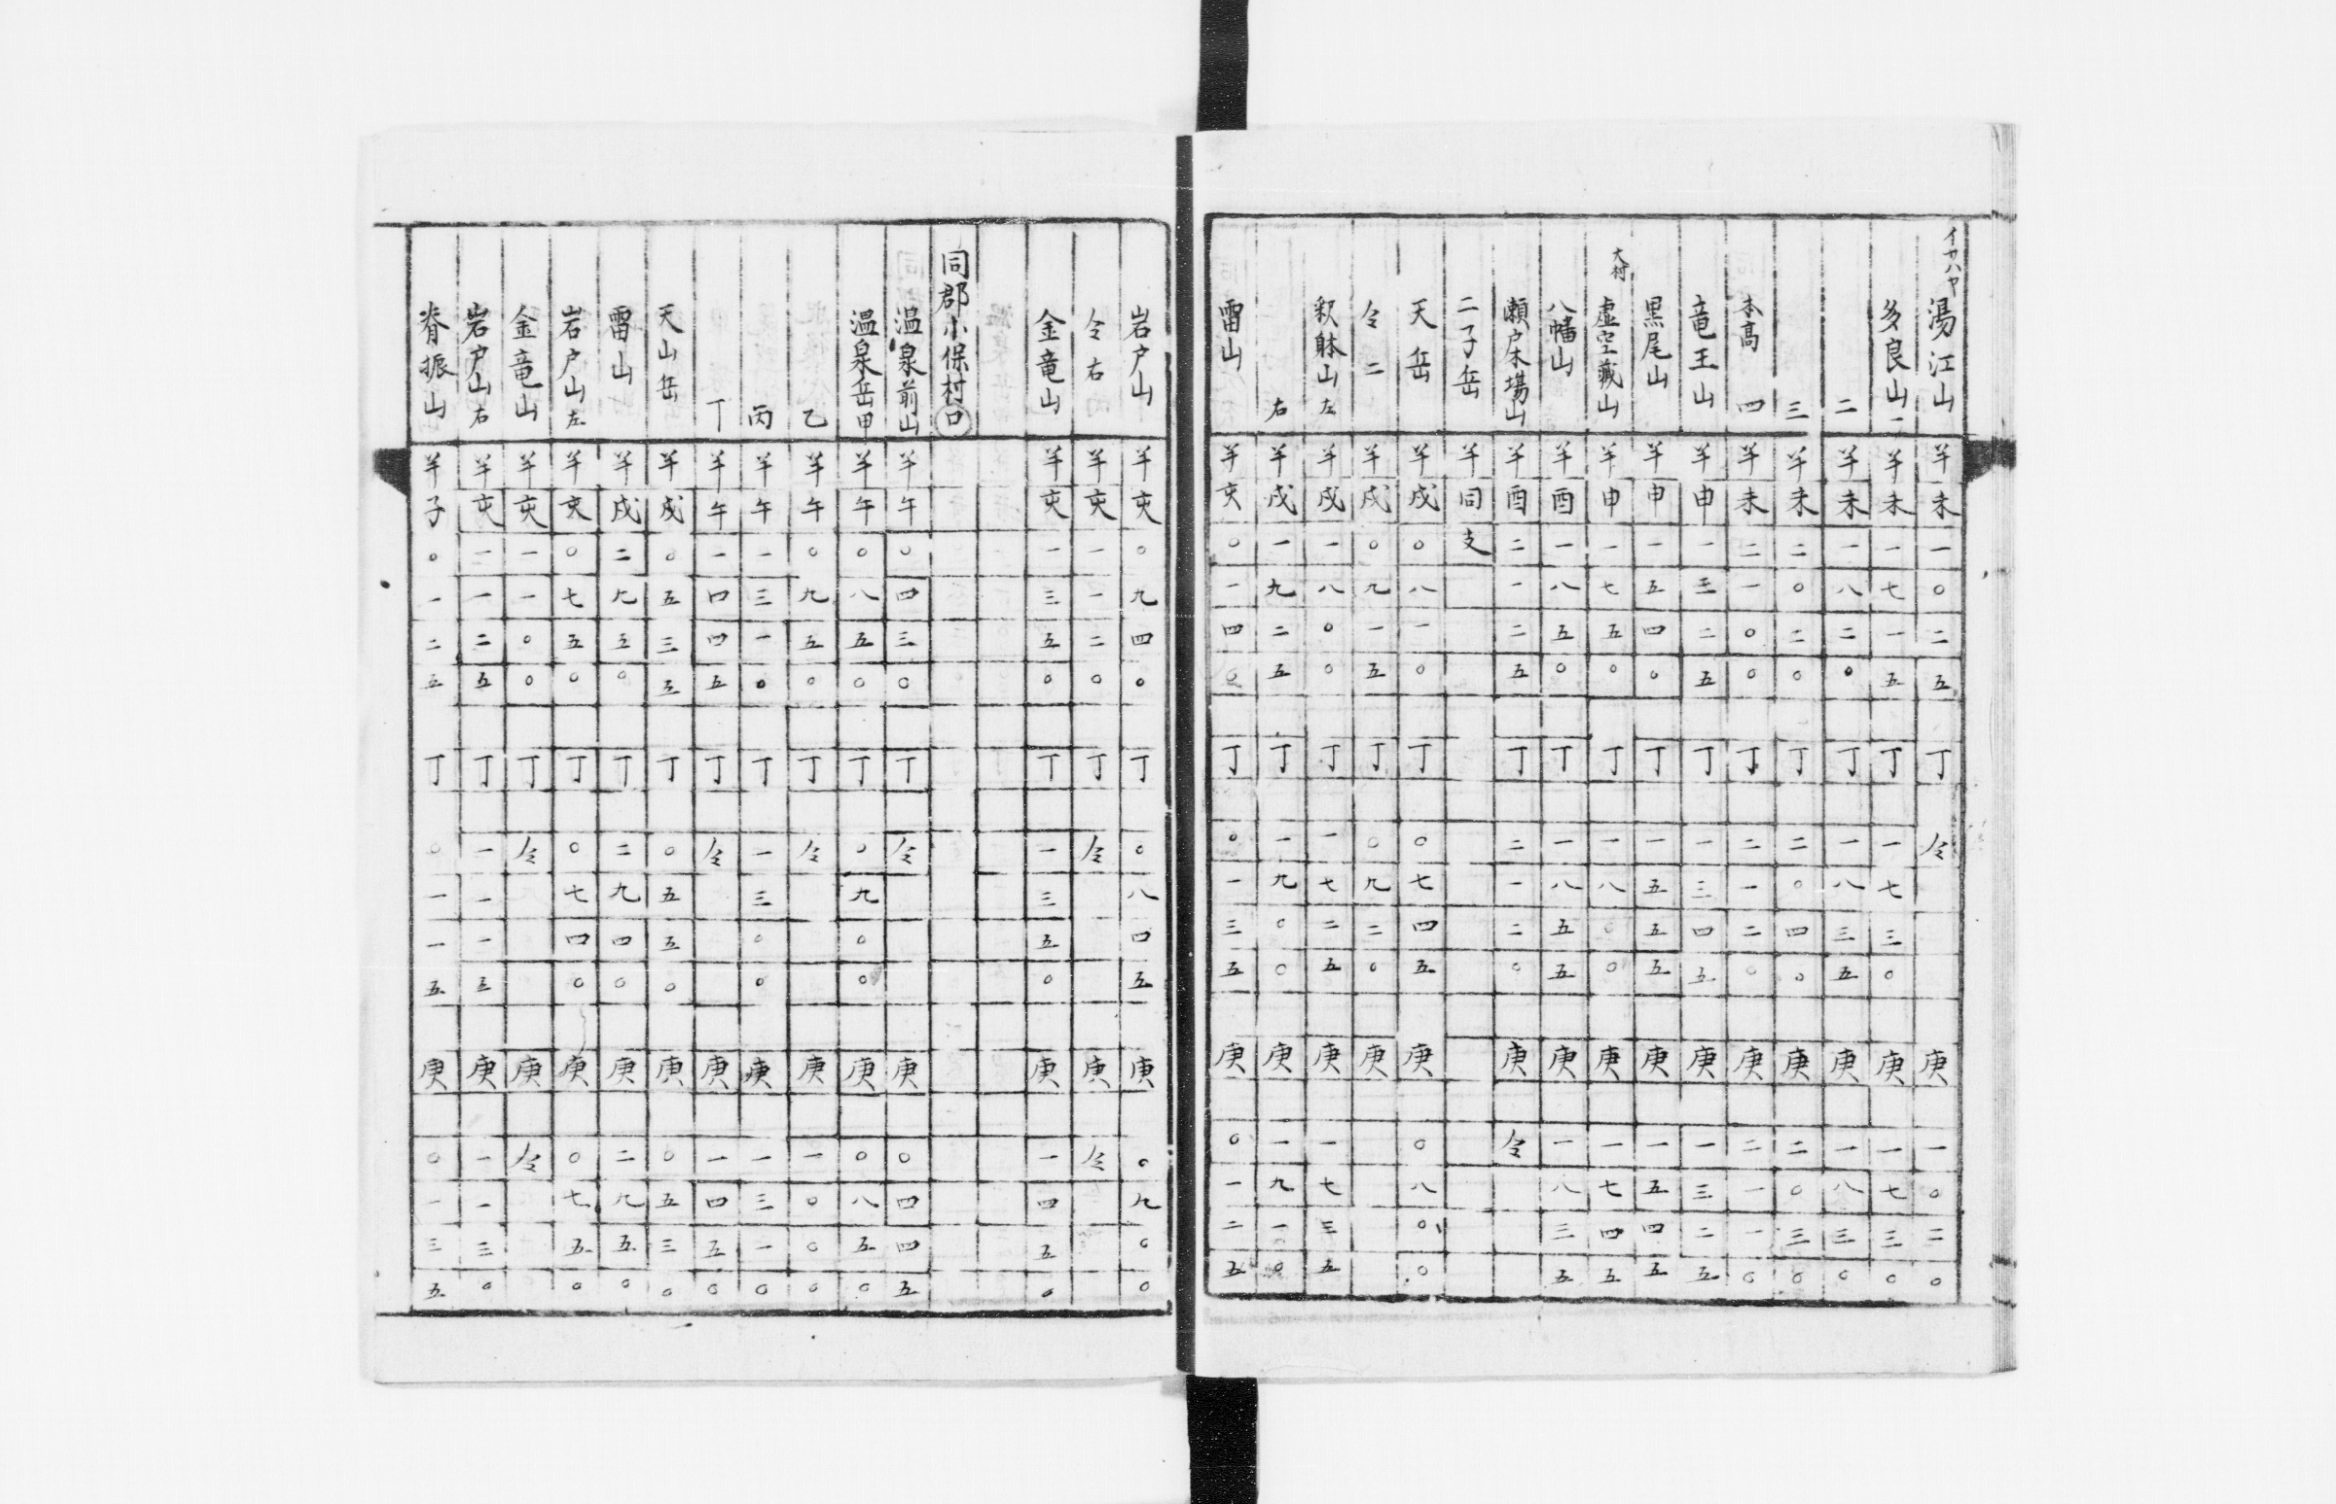 イサハヤ 湯江山 羊未一〇二五 丁仝 庚一〇二〇
多良山一 羊未一七一五 丁一七三〇 庚一七三〇
二 羊未一八二〇 丁一八三五 庚一八三〇
三 羊未二〇二〇 丁二〇四〇 庚二〇三〇
本高 四 羊未二一〇〇 丁二一二〇 庚二一一〇
竜王山 羊申一三二五 丁一三四五 庚一三二五
黒尾山 羊申一五四〇 丁一五五五 庚一五四五
大村 虚空蔵山 羊申一七五〇 丁一八〇〇 庚一七四五
八幡山 羊酉一八五〇 丁一八五五 庚一八三五
瀬戸木場山 羊酉二一二五 丁二一二〇 庚仝
二子岳 羊同支
天岳 羊戌〇八一〇 丁〇七四五 庚〇八〇〇
仝二 羊戌〇九一五 丁〇九二〇 庚
釈躰山左 羊戌一八〇〇 丁一七二五 庚一七三五
右 羊戌一九二五 丁一九〇〇 庚一九一〇
雷山 羊亥〇一四〇 丁〇一三五 庚〇一二五
岩戸山 羊亥〇九四〇 丁〇八四五 庚〇九〇〇
仝右 羊亥一一二〇 丁仝 庚仝
金竜山 羊亥一三五〇 丁一三五〇 庚一四五〇
同郡小保村口
温泉前山 羊午〇四三〇 丁仝 庚〇四四五
温泉岳甲 羊午〇八五〇 丁〇九〇〇 庚〇八五〇
乙 羊午〇九五〇 丁仝 庚一〇〇〇
丙 羊午一三一〇 丁一三〇〇 庚一三一〇
丁 羊午一四四五 丁仝 庚一四五〇
天山岳 羊戌〇五三五 丁〇五五〇 庚〇五三〇
雷山 羊戌二九五〇 丁二九四〇 庚二九五〇
岩戸山左 羊亥〇七五〇 丁〇七四〇 庚〇七五〇
金竜山 羊亥一一〇〇 丁仝 庚仝
岩戸山右 羊亥一一二五 丁一一一五 庚一一三〇
脊振山 羊子〇一二五 丁〇一一五 庚〇一三五